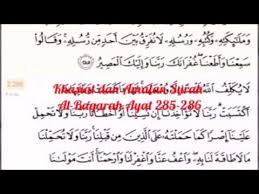 وَمَلَٰٓئِكَتِهِۦ وَكُتُبِهِۦ وَرُسُلِهِۦ لَا نُفَرِّقُ بَيْنَ أَحَدٍ مِّن رُّسُلِهِۦ ۚ وَقَالُوا۟
سَمِعْنَا وَأَطَعْنَا ۖ غُفْرَانَكَ رَبَّنَا وَإِلَيْكَ ٱلْمَصِيرُ ٢٨٥
2:286
Khasiat dan Amalan Surah
لَا يُكَلِّفُ
Al-Baqarah Ayat 285-286
ٱكْتَسَبَتْ رَبَّنَا لَا رَبَّنَا وَلَا تَحْمِلْ
عَلَيْنَآ إِصْرًا كَمَا حَمَلْتَهُۥ عَلَى ٱلَّذِينَ مِن قَبْلِنَا ۚ رَبَّنَا وَلَا تُحَمِّلْنَا
مَا لَا طَاقَةَ لَنَا بِهِۦ ۖ وَٱعْفُ عَنَّا وَٱغْفِرْ لَنَا وَٱرْحَمْنَآ ۚ أَنتَ مَوْلَىٰنَا